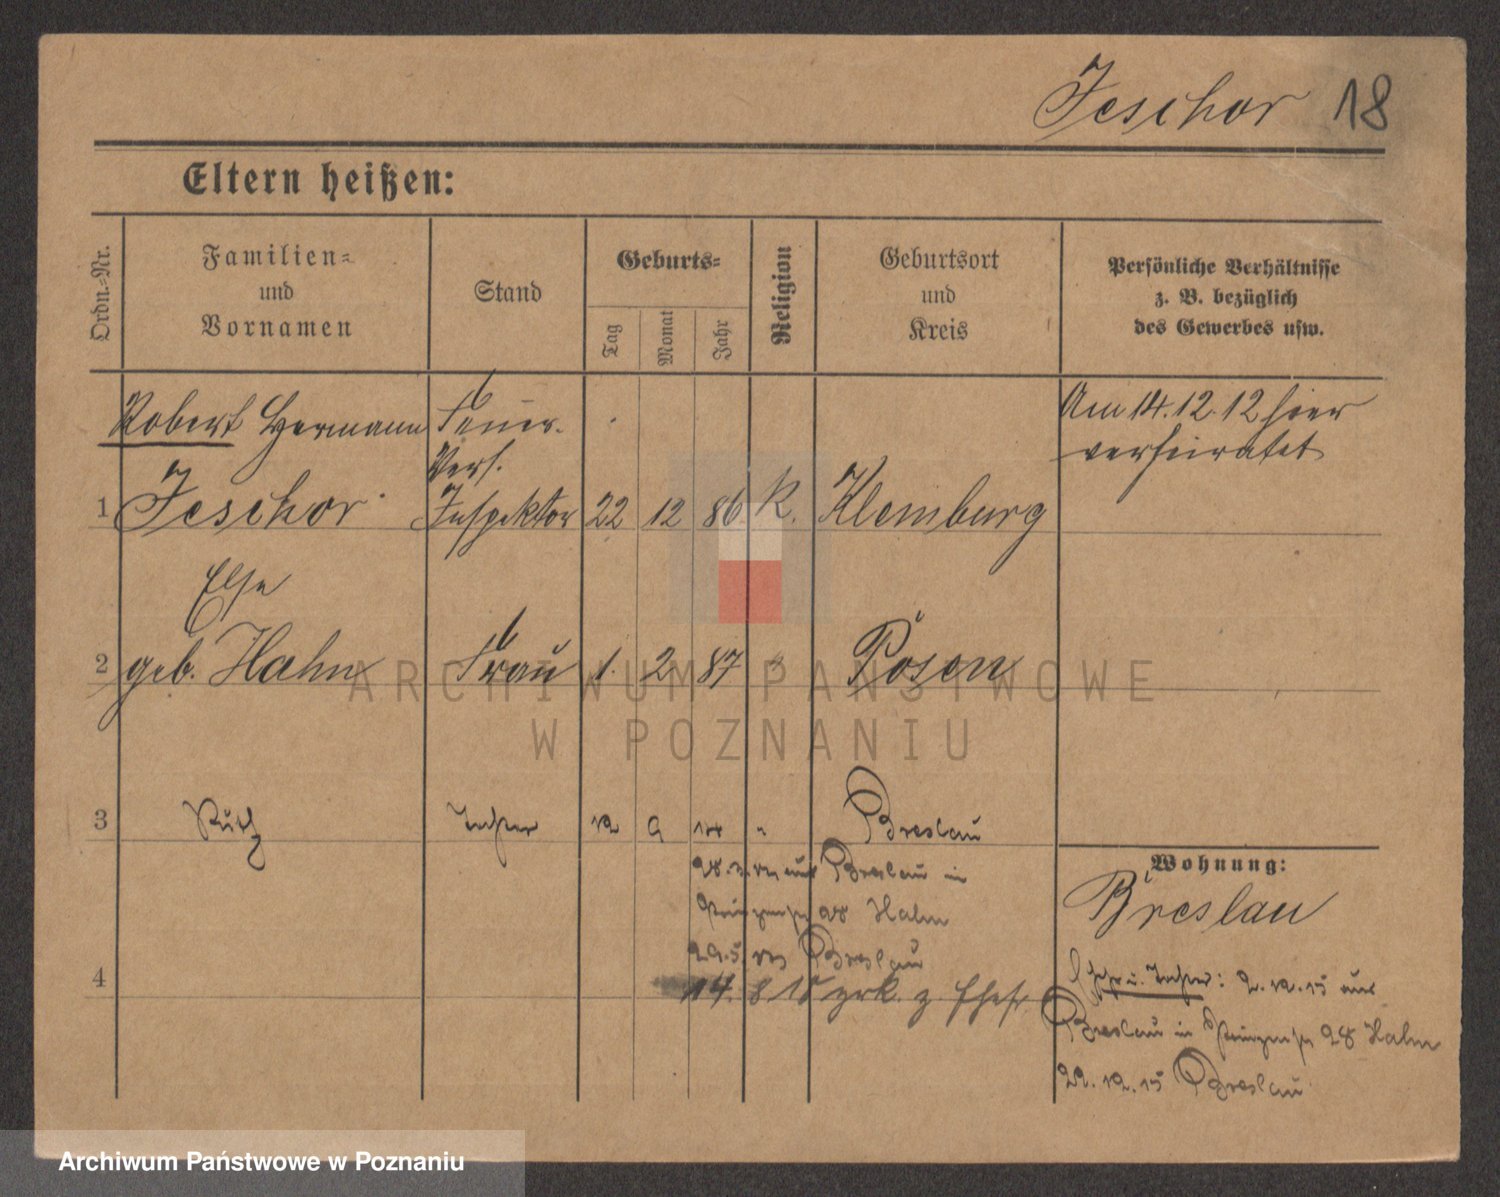 Jeschor 18
Eltern heißen:
Ordn.-Nr.
Familien-
und
Vornamen
Stand
Geburts-
Tag
Monat
Jahr
Religion
Geburtsort
und
Kreis
Persönliche Verhältnisse
z. B. bezüglich
des Gewerbes usw.
Robert Hermann
Jeschor
Feuer-
Vers.
Inspektor
1 22 12 86 K. Klemburg
Am 14.12.12 hier
verheiratet
Else
2 geb. Hahn Frau 1. 2 87 " Posen
3 Ruth Tochter 12 9 14 " Breslau
aus Breslau in
28 Hahn
Breslau
4
14. 8 15 zrk. z Ehefr.
Wohnung:
Breslau
Ehefr u. Tochter: 2.12.15 aus
Breslau in Prinzenstr 28 Hahn
22.12.15 Breslau
ARCHIWUM PAŃSTWOWE
W POZNANIU
Archiwum Państwowe w Poznaniu